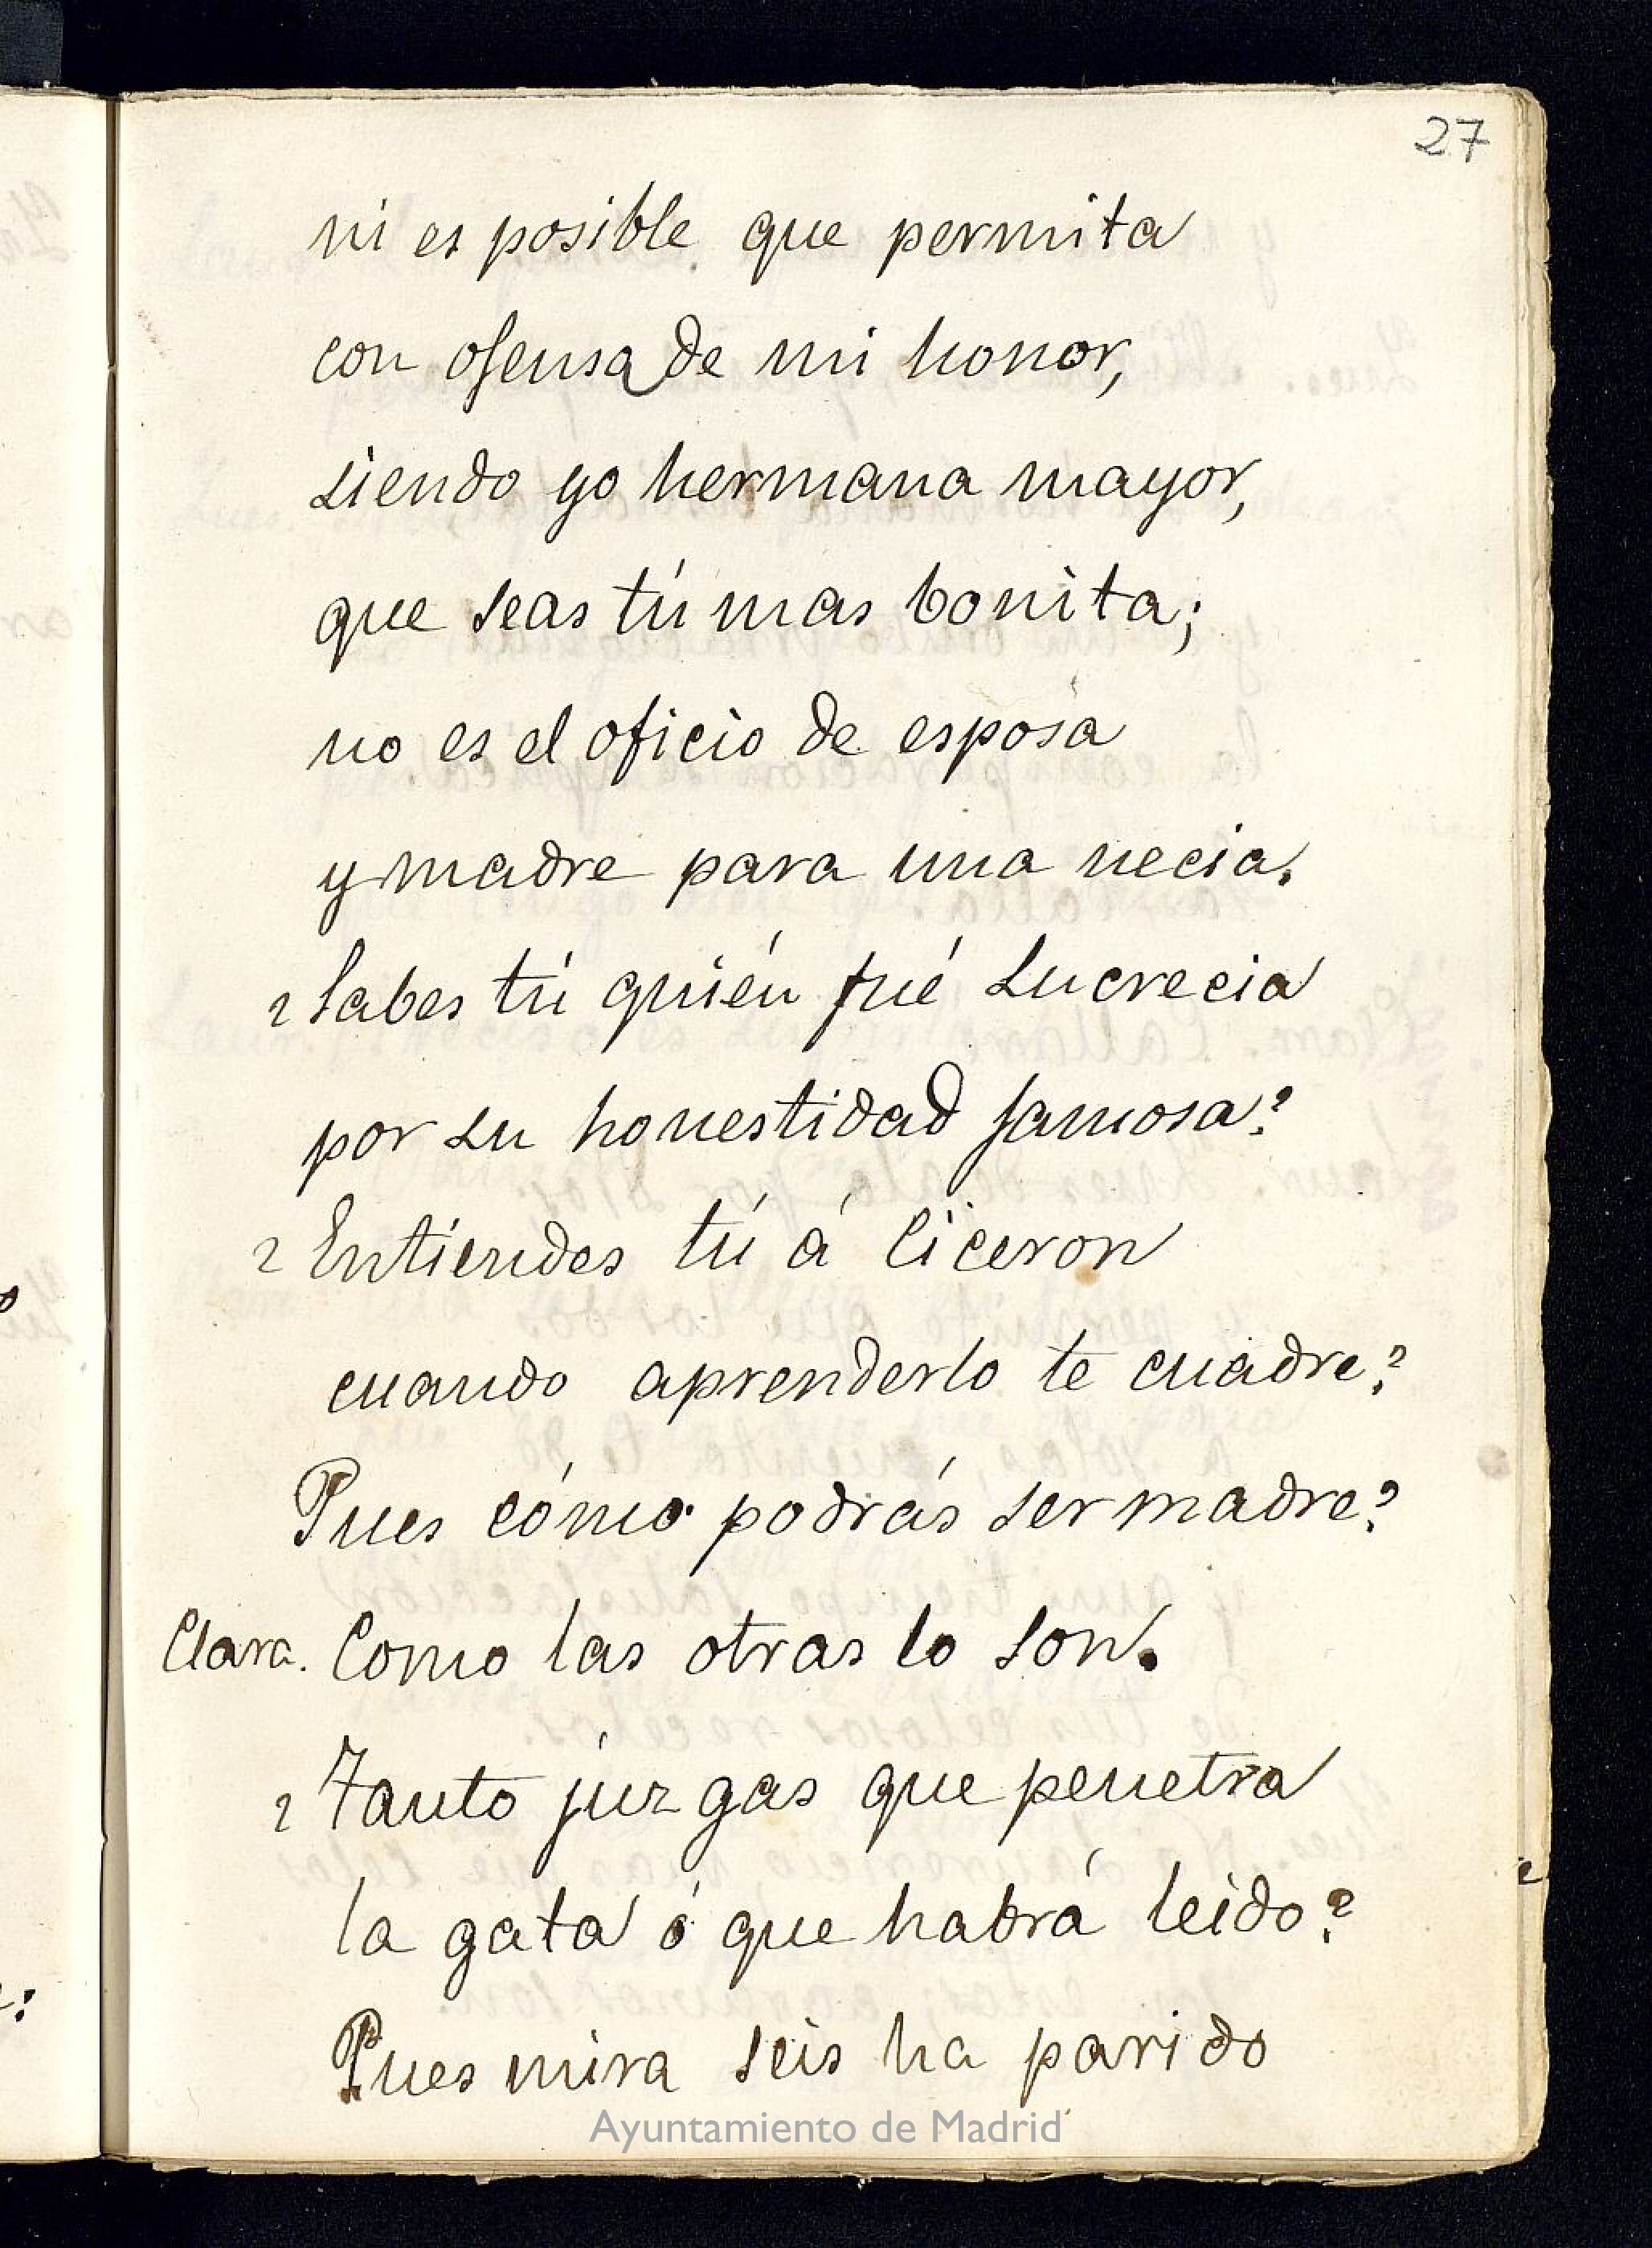 27
ni es posible que permita
con ofensa de mi honor,
siendo yo hermana mayor,
que seas tú mas bonita;
no es el oficio de esposa
y madre para una necia.
¿Sabes tú quién fué Lucrecia
por su honestidad famosa?
¿Entiendes tú á Ciceron
cuando aprenderlo te cuadre?
Pues cómo podrás ser madre?
Clara. Como las otras lo son.
¿Tanto júzgas que penetra
la gata ó que habrá leido?
Pues mira seis ha parido
Ayuntamiento de Madrid